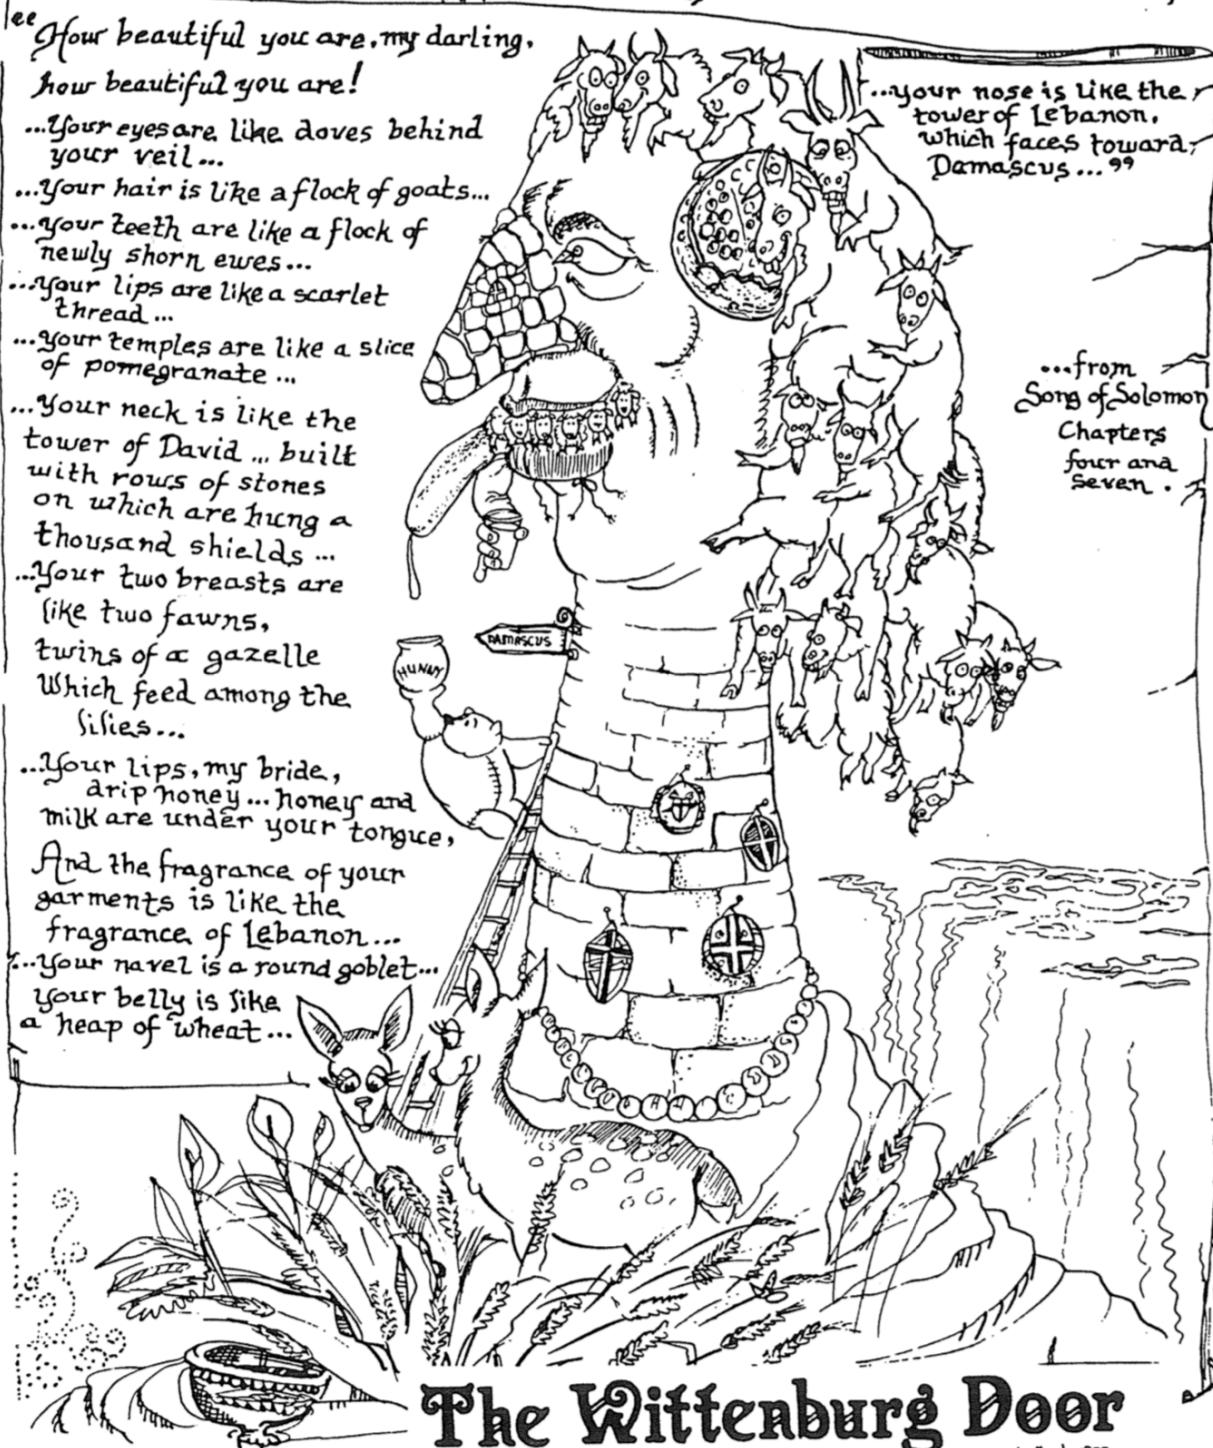 “How beautiful you are, my darling,
how beautiful you are!
...Your eyes are like doves behind
your veil...
...Your hair is like a flock of goats...
...Your teeth are like a flock of
newly shorn ewes...
...Your lips are like a scarlet
thread...
...Your temples are like a slice
of pomegranate...
...Your neck is like the
tower of David... built
with rows of stones
on which are hung a
thousand shields...
...Your two breasts are
like two fawns,
twins of a gazelle
Which feed among the
lilies...
...Your lips, my bride,
drip honey... honey and
milk are under your tongue,
And the fragrance of your
garments is like the
fragrance of Lebanon...
...Your navel is a round goblet...
Your belly is like
a heap of wheat...
...your nose is like the
tower of Lebanon,
which faces toward
Damascus...”
...from
Song of Solomon
Chapters
four and
seven.
DAMASCUS
HUNNY
The Wittenburg Door